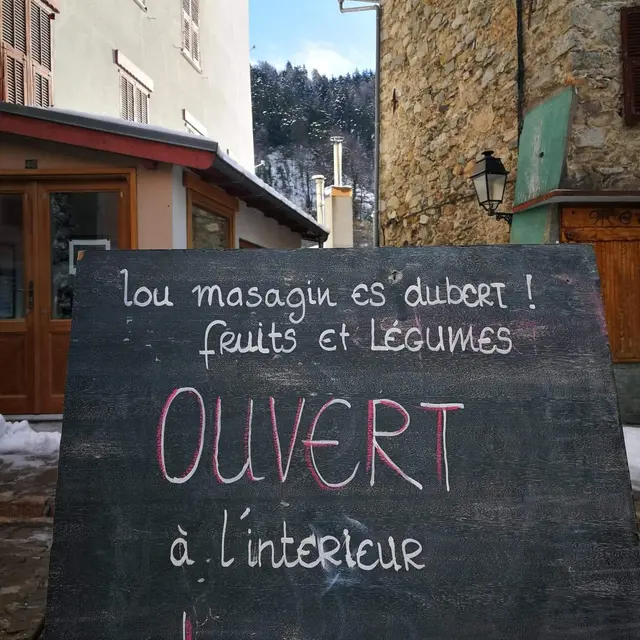 lou masagin es dubERT !
fruits et LÉGUMES
OUVERT
à l'intERIEUR